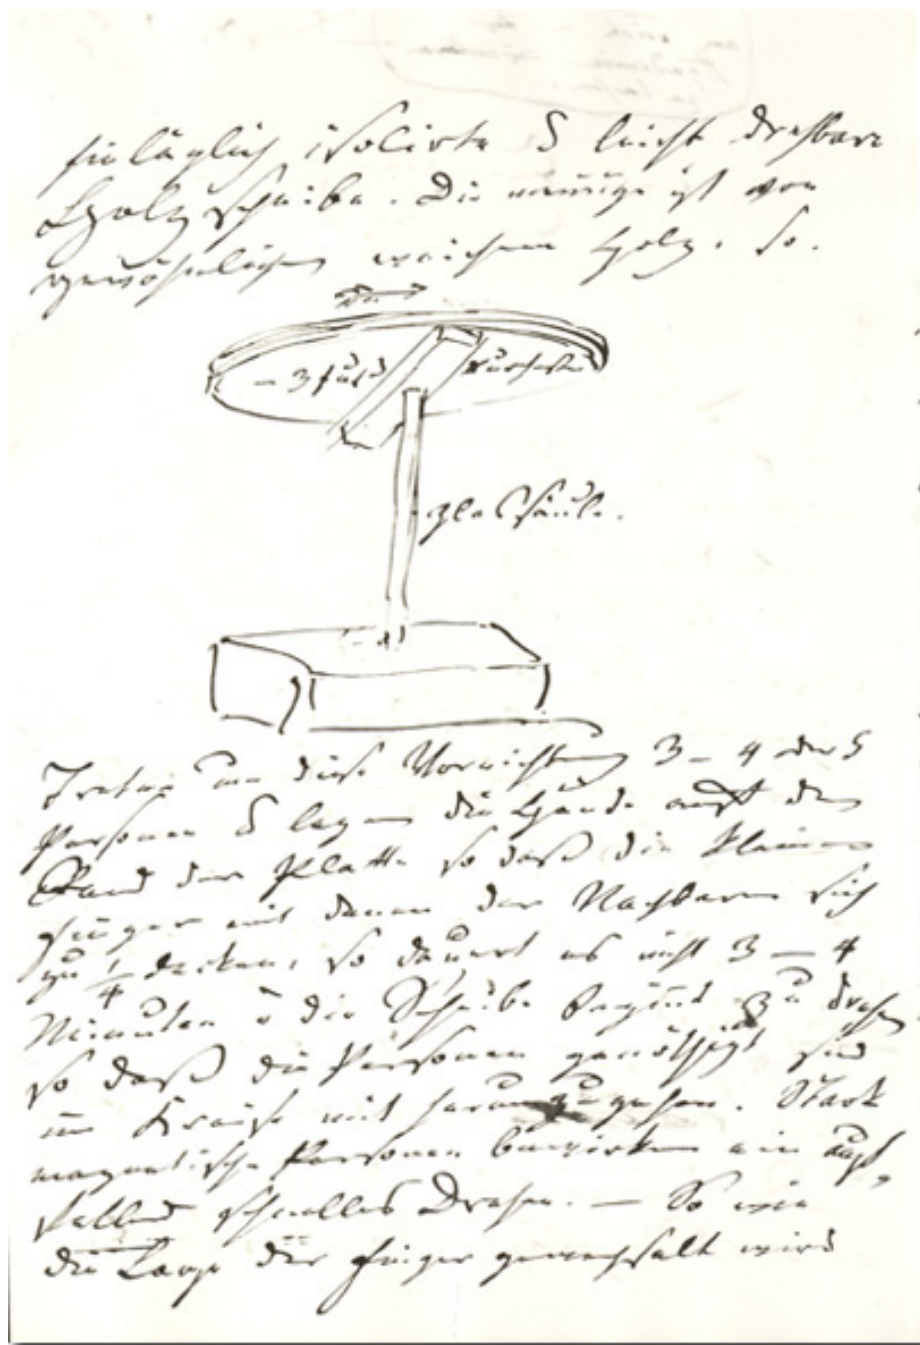 hinlänglich isolirte & leicht drehbare
Holzscheibe. Die meinige ist von
gewöhnlichem weichen Holz. So.
– 3 Fuß Durchm
glas Säule.
Treten an diese Vorrichtung 3 – 4 oder 5
Personen & legen die Hände auf den
Rand der Platte so daß die kleinen
Finger mit denen der Nachbaren sich
zu 1/4 decken, so dauert es nicht 3 – 4
Minuten & die Scheibe beginnt zu drehen
so daß die Personen genöthigt sind
im Kreise mit herumzugehen. Stark
magnetische Personen bewirken ein auf,
fallend schnelles Drehen. – So wie
die Lage der Finger gewechselt wird